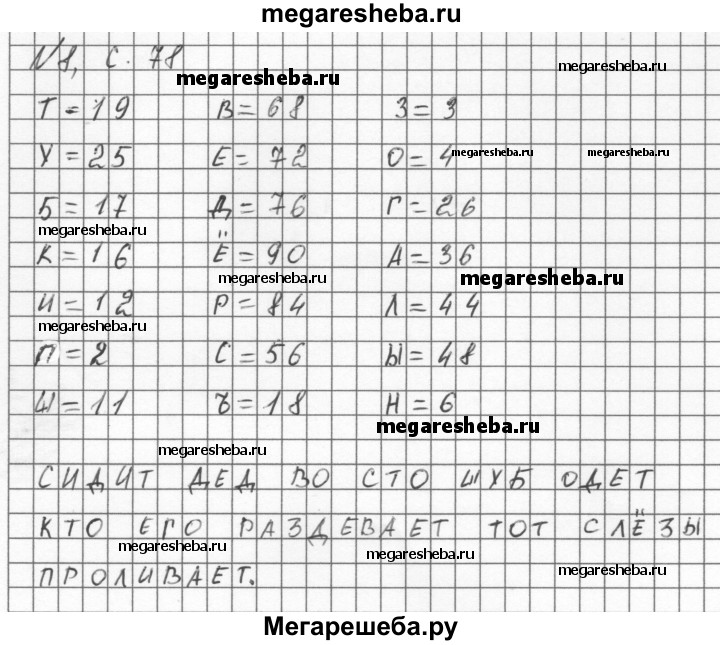 megaresheba.ru
N8, с. 78
megaresheba.ru
megaresheba.ru
Т = 19 В = 68 З = 3
У = 25 Е = 72 О = 4 megaresheba.ru megaresheba.ru
Б = 17 Д = 76 Г = 26
megaresheba.ru
К = 16 Ё = 90 А = 36
megaresheba.ru megaresheba.ru
И = 12 Р = 84 Л = 44
megaresheba.ru
П = 2 С = 56 Ы = 48
Ш = 11 Ъ = 18 Н = 6
megaresheba.ru
megaresheba.ru
СИДИТ ДЕД ВО СТО ШУБ ОДЕТ
КТО ЕГО РАЗДЕВАЕТ ТОТ СЛЁЗЫ
megaresheba.ru megaresheba.ru
ПРОЛИВАЕТ. megaresheba.ru
Мегарешеба.ру